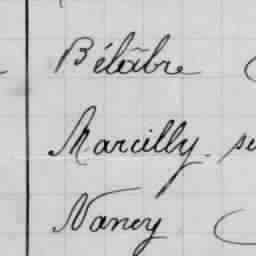 Bélâbre
Marcilly. su
Nancy